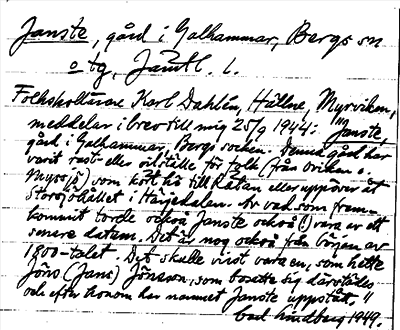 Janste, gård i Galhammar, Bergs sn
o tg, Jämtl. l.
Folkskollärare Karl Dahlén, Hällne, Myrviken,
meddelar i brev till mig 25/9 1944: "Janste,
gård i Galhammar, Bergs socken. Denna gård har
varit rast- eller vilställe för folk (från Oviken o.
Myssjö), som kört hö till Rätan eller uppöver åt
Storsjöhållet i Härjedalen. Av vad som fram-
kommit torde också Janste också (!) vara av ett
senare datum. Det är nog också från början av
1800-talet. Det skulle visst vara en, som hette
Jöns (Jans) Jönsson, som bosatte sig därstädes
och efter honom har namnet Janste uppstått."
Carl Lindberg 1949.